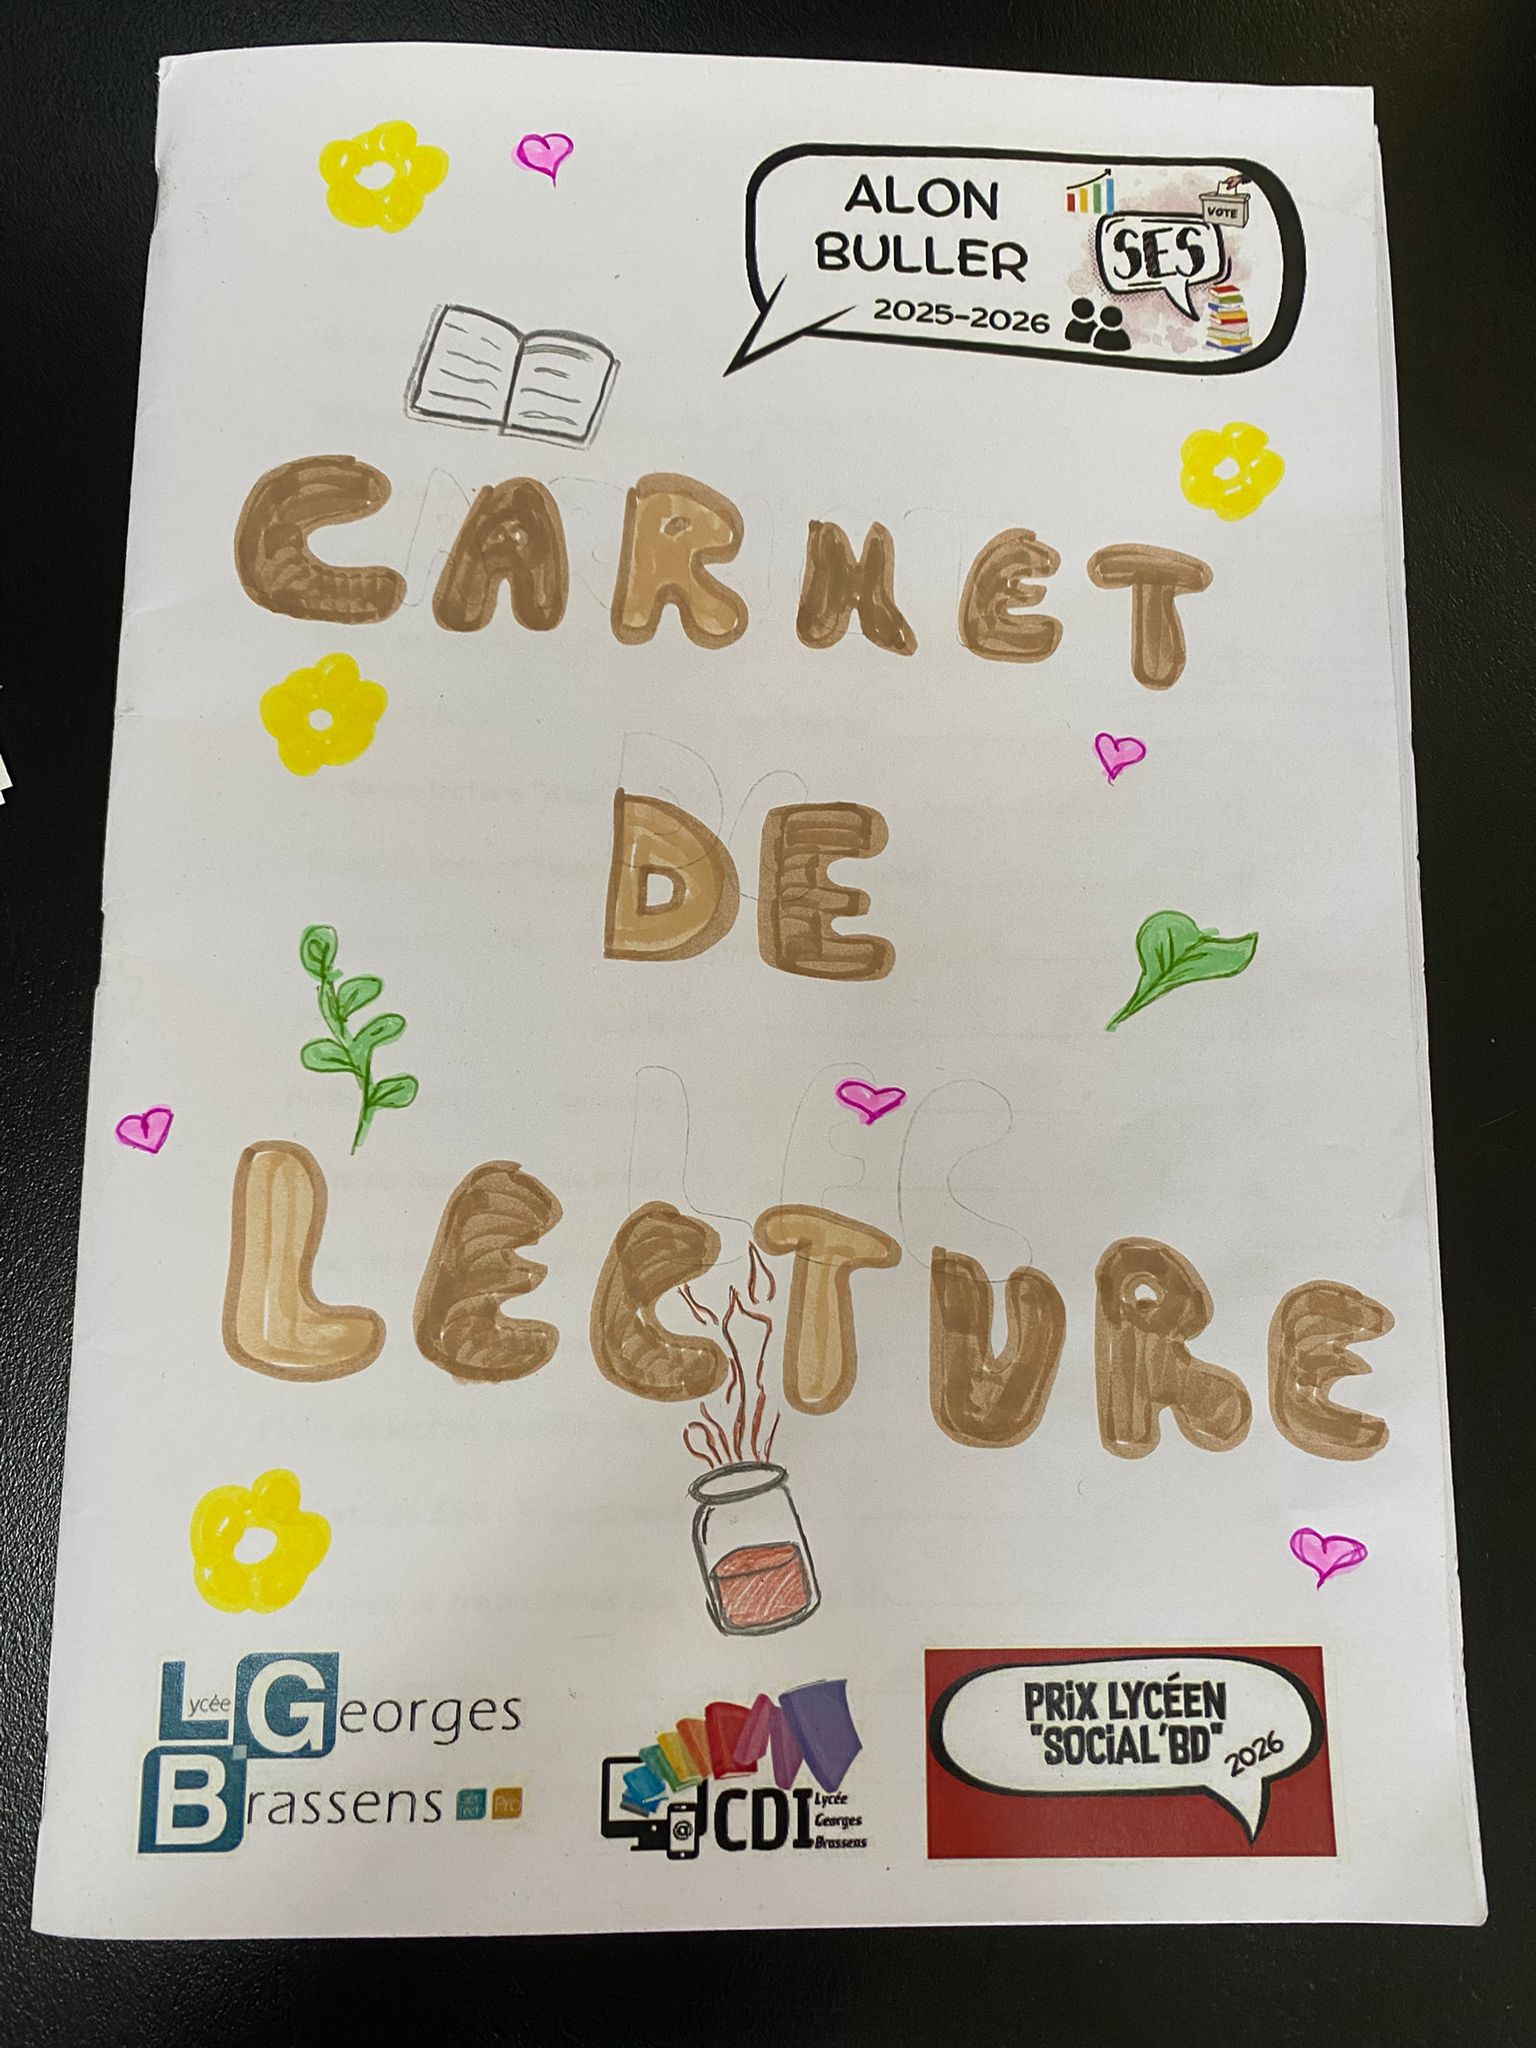 ALON
BULLER
2025-2026
VOTE
SES
CARNET
DE
LECTURE
Lycée Georges
Brassens
Pro
@
CDI
Lycée
Georges
Brassens
PRIX LYCÉEN
"SOCIAL'BD"
2026